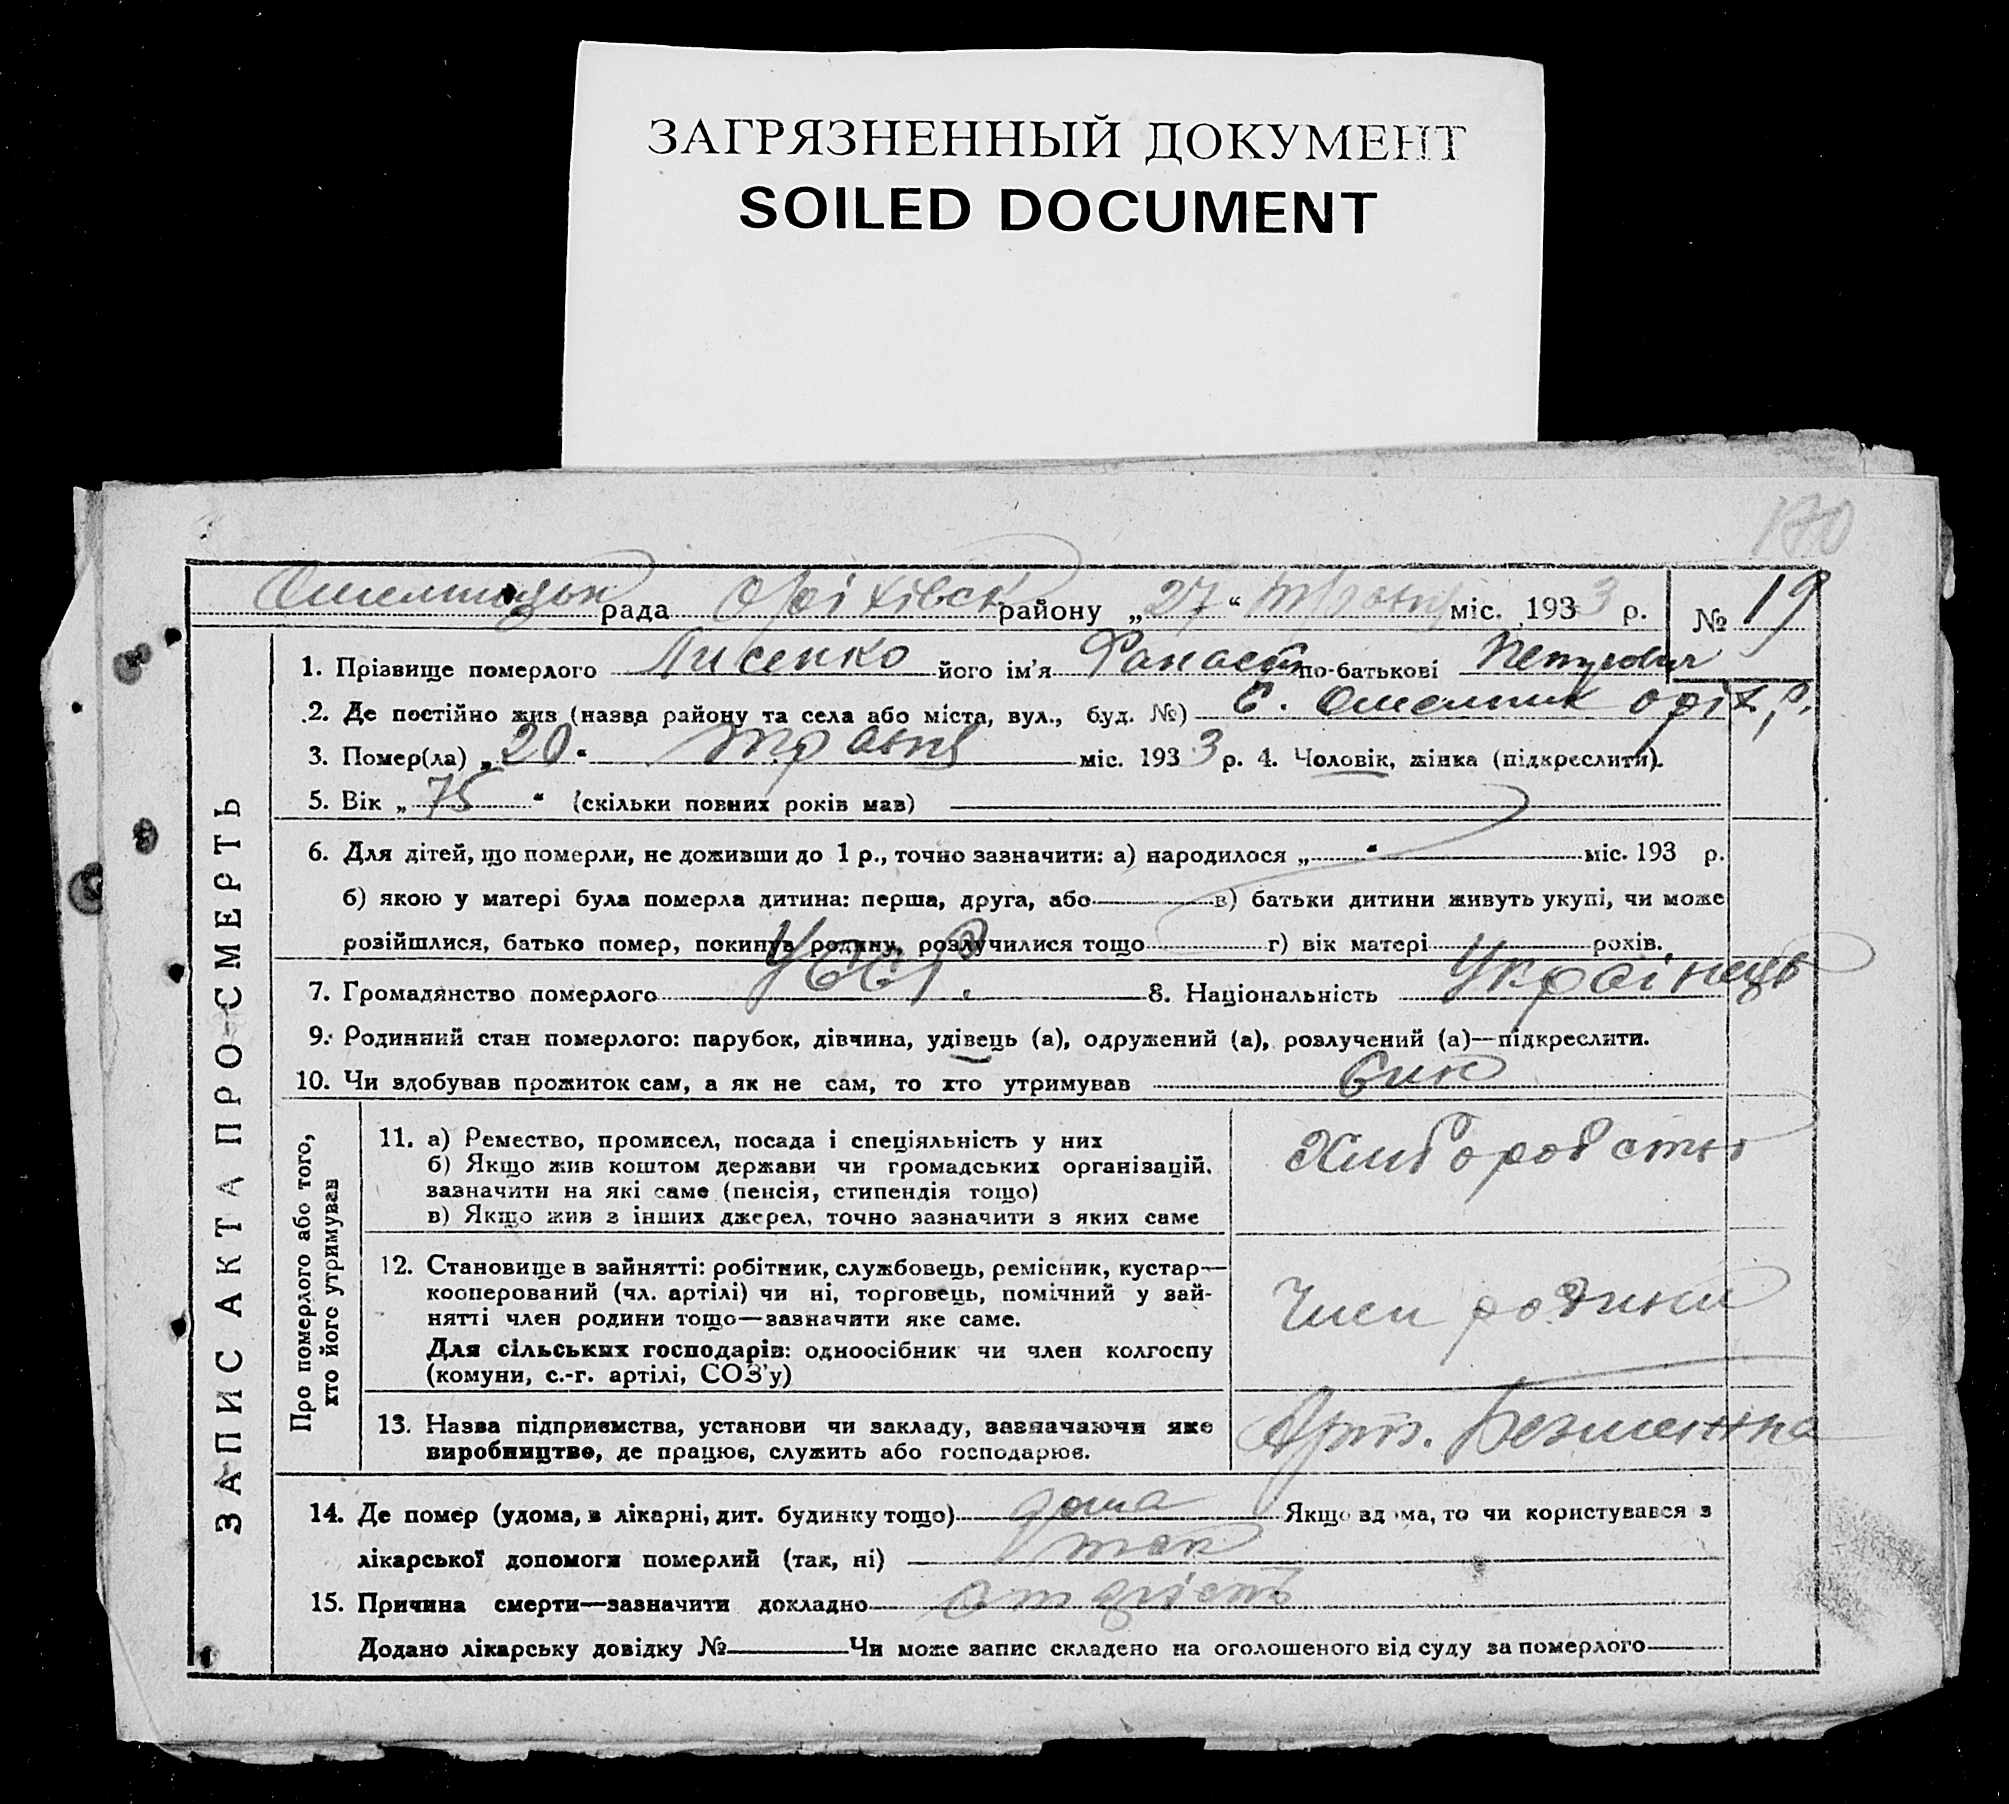 ЗАГРЯЗНЕННЫЙ ДОКУМЕНТ
SOILED DOCUMENT
170
Омельницьк рада Оріхівськ району „27“ травня міс. 1933 р. № 19
ЗАПИС АКТА ПРО СМЕРТЬ
1. Прізвище померлого Лисенко його ім'я Фанасій по-батькові Петрович
2. Де постійно жив (назва району та села або міста, вул., буд. №) С. Омельник Оріх. р.
3. Помер(ла) „20“ травня міс. 1933 р. 4. Чоловік, жінка (підкреслити).
5. Вік „75“ (скільки повних років мав)
6. Для дітей, що померли, не доживши до 1 р., точно зазначити: а) народилося „ “ міс. 193 р.
б) якою у матері була померла дитина: перша, друга, або в) батьки дитини живуть укупі, чи може
розійшлися, батько помер, покинув родину, розлучилися тощо г) вік матері рохів.
7. Громадянство померлого УССР. 8. Національність Українець
9. Родинний стан померлого: парубок, дівчина, удівець (а), одружений (а), розлучений (а)—підкреслити.
10. Чи здобував прожиток сам, а як не сам, то хто утримував Син
Про померлого або того,
хто його утримував
11. а) Ремество, промисел, посада і спеціяльність у них
б) Якщо жив коштом держави чи громадських організацій,
зазначити на які саме (пенсія, стипендія тощо)
в) Якщо жив з інших джерел, точно зазначити з яких саме
Хлиборобство
12. Становище в зайнятті: робітник, службовець, ремісник, кустар—
кооперований (чл. артілі) чи ні, торговець, помічний у зай-
нятті член родини тощо—зазначити яке саме.
Для сільських господарів: одноосібник чи член колгоспу
(комуни, с.-г. артілі, СОЗ'у)
Член родини
13. Назва підприємства, установи чи закладу, зазначаючи яке
виробництво, де працює, служить або господарює.
Арт.
14. Де помер (удома, в лікарні, дит. будинку тощо) дома Якщо вдома, то чи користувався з
лікарської допомоги померлий (так, ні) так
15. Причина смерти—зазначити докладно старість
Додано лікарську довідку № Чи може запис складено на оголошеного від суду за померлого